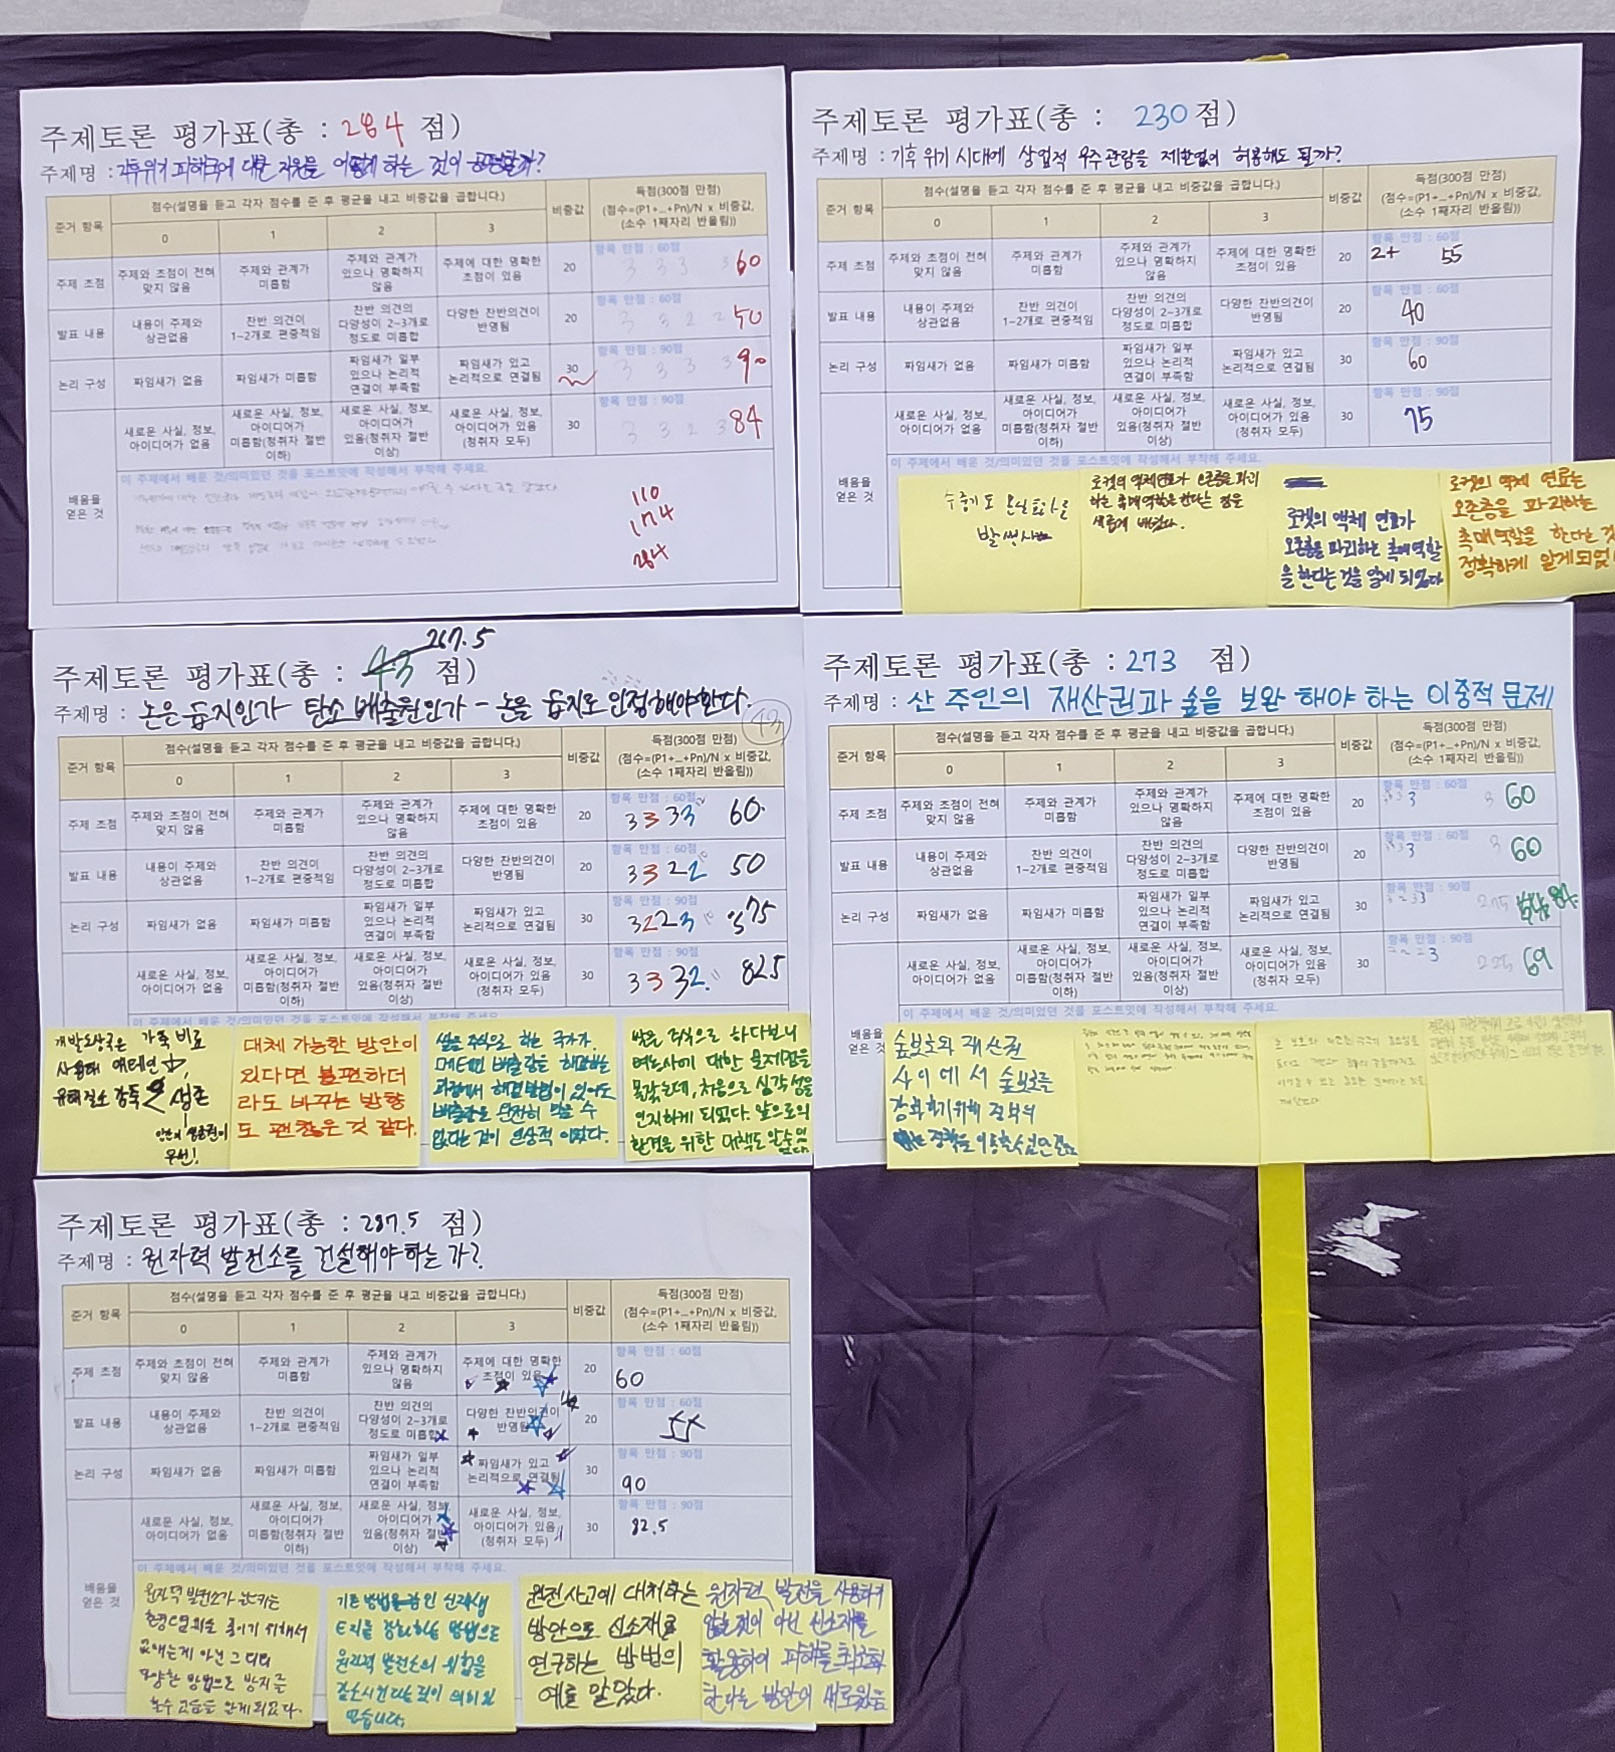 주제토론 평가표(총 : 284 점)
주제명 : 기후위기 피해국에 대한 지원을 어떻게 하는 것이 공정할까?
준거 항목
점수(설명을 듣고 각자 점수를 준 후 평균을 내고 비중값을 곱합니다.)
0 1 2 3
비중값
득점(300점 만점)
(점수=(P1+...+Pn)/N x 비중값,
(소수 1째자리 반올림))
주제 초점
주제와 초점이 전혀
맞지 않음
주제와 관계가
미흡함
주제와 관계가
있으나 명확하지
않음
주제에 대한 명확한
초점이 있음
20
항목 만점 : 60점
3 3 3 3 60
발표 내용
내용이 주제와
상관없음
찬반 의견이
1~2개로 편중적임
찬반 의견의
다양성이 2~3개로
정도로 미흡함
다양한 찬반의견이
반영됨
20
항목 만점 : 60점
3 3 2 2 50
논리 구성
짜임새가 없음
짜임새가 미흡함
짜임새가 일부
있으나 논리적
연결이 부족함
짜임새가 있고
논리적으로 연결됨
30
항목 만점 : 90점
3 3 3 3 90
배움을
얻은 것
새로운 사실, 정보,
아이디어가 없음
새로운 사실, 정보,
아이디어가
미흡함(청취자 절반
이하)
새로운 사실, 정보,
아이디어가
있음(청취자 절반
이상)
새로운 사실, 정보,
아이디어가 있음
(청취자 모두)
30
항목 만점 : 90점
3 3 2 3 84
이 주제에서 배운 것/의미있던 것을 포스트잇에 작성해서 부착해 주세요.
110
174
284
주제토론 평가표(총 : 230 점)
주제명 : 기후 위기 시대에 상업적 우주관람을 제한없이 허용해도 될까?
준거 항목
점수(설명을 듣고 각자 점수를 준 후 평균을 내고 비중값을 곱합니다.)
0 1 2 3
비중값
득점(300점 만점)
(점수=(P1+...+Pn)/N x 비중값,
(소수 1째자리 반올림))
주제 초점
주제와 초점이 전혀
맞지 않음
주제와 관계가
미흡함
주제와 관계가
있으나 명확하지
않음
주제에 대한 명확한
초점이 있음
20
항목 만점 : 60점
2+ 55
발표 내용
내용이 주제와
상관없음
찬반 의견이
1~2개로 편중적임
찬반 의견의
다양성이 2~3개로
정도로 미흡함
다양한 찬반의견이
반영됨
20
항목 만점 : 60점
40
논리 구성
짜임새가 없음
짜임새가 미흡함
짜임새가 일부
있으나 논리적
연결이 부족함
짜임새가 있고
논리적으로 연결됨
30
항목 만점 : 90점
60
배움을
얻은 것
새로운 사실, 정보,
아이디어가 없음
새로운 사실, 정보,
아이디어가
미흡함(청취자 절반
이하)
새로운 사실, 정보,
아이디어가
있음(청취자 절반
이상)
새로운 사실, 정보,
아이디어가 있음
(청취자 모두)
30
항목 만점 : 90점
75
이 주제에서 배운 것/의미있던 것을 포스트잇에 작성해서 부착해 주세요.
수증기도 온실효과를
발생시
로켓의 액체연료가 오존층을 파괴
하는 촉매역할을 한다는 점을
새롭게 배웠다.
로켓의 액체 연료가
오존층을 파괴하는 촉매역할
을 한다는 것을 알게 되었다
로켓의 액체 연료는
오존층을 파괴하는
촉매역할을 한다는 것
정확하게 알게되었
주제토론 평가표(총 : 43 267.5 점)
주제명 : 논은 습지인가 탄소 배출원인가 - 논을 습지로 인정해야한다.
43
준거 항목
점수(설명을 듣고 각자 점수를 준 후 평균을 내고 비중값을 곱합니다.)
0 1 2 3
비중값
득점(300점 만점)
(점수=(P1+...+Pn)/N x 비중값,
(소수 1째자리 반올림))
주제 초점
주제와 초점이 전혀
맞지 않음
주제와 관계가
미흡함
주제와 관계가
있으나 명확하지
않음
주제에 대한 명확한
초점이 있음
20
항목 만점 : 60점
3 3 3 3 60
발표 내용
내용이 주제와
상관없음
찬반 의견이
1~2개로 편중적임
찬반 의견의
다양성이 2~3개로
정도로 미흡함
다양한 찬반의견이
반영됨
20
항목 만점 : 60점
3 3 2 2 50
논리 구성
짜임새가 없음
짜임새가 미흡함
짜임새가 일부
있으나 논리적
연결이 부족함
짜임새가 있고
논리적으로 연결됨
30
항목 만점 : 90점
3 2 2 3 75
새로운 사실, 정보,
아이디어가 없음
새로운 사실, 정보,
아이디어가
미흡함(청취자 절반
이하)
새로운 사실, 정보,
아이디어가
있음(청취자 절반
이상)
새로운 사실, 정보,
아이디어가 있음
(청취자 모두)
30
항목 만점 : 90점
3 3 3 2 82.5
이 주제에서 배운 것/의미있던 것을 포스트잇에 작성해서 부착해 주세요.
개발도상국은 가축 비료
생존
우선!
대체 가능한 방안이
있다면 불편하더
라도 바꾸는 방향
도 괜찮은 것 같다.
쌀을 주식으로 하는 국가가
메테인 배출량을 해결하는
과정에서 해결방법이 있어도
배출량을 완전히 막을 수
없다는 것이 인상적 이었다.
쌀을 주식으로 하다보니
벼농사에 대한 문제점을
몰랐는데, 처음으로 심각성을
인지하게 되었다. 앞으로의
환경을 위한 대책도 알수있
주제토론 평가표(총 : 273 점)
주제명 : 산 주인의 재산권과 숲을 보완 해야 하는 이중적 문제
준거 항목
점수(설명을 듣고 각자 점수를 준 후 평균을 내고 비중값을 곱합니다.)
0 1 2 3
비중값
득점(300점 만점)
(점수=(P1+...+Pn)/N x 비중값,
(소수 1째자리 반올림))
주제 초점
주제와 초점이 전혀
맞지 않음
주제와 관계가
미흡함
주제와 관계가
있으나 명확하지
않음
주제에 대한 명확한
초점이 있음
20
항목 만점 : 60점
3 3 60
발표 내용
내용이 주제와
상관없음
찬반 의견이
1~2개로 편중적임
찬반 의견의
다양성이 2~3개로
정도로 미흡함
다양한 찬반의견이
반영됨
20
항목 만점 : 60점
3 3 60
논리 구성
짜임새가 없음
짜임새가 미흡함
짜임새가 일부
있으나 논리적
연결이 부족함
짜임새가 있고
논리적으로 연결됨
30
항목 만점 : 90점
84
배움을
얻은 것
새로운 사실, 정보,
아이디어가 없음
새로운 사실, 정보,
아이디어가
미흡함(청취자 절반
이하)
새로운 사실, 정보,
아이디어가
있음(청취자 절반
이상)
새로운 사실, 정보,
아이디어가 있음
(청취자 모두)
30
항목 만점 : 90점
3 69
이 주제에서 배운 것/의미있던 것을 포스트잇에 작성해서 부착해 주세요.
숲보호와 재산권
사이에서 숲보호를
강화하기위해 정부의
주제토론 평가표(총 : 287.5 점)
주제명 : 원자력 발전소를 건설해야하는가?
준거 항목
점수(설명을 듣고 각자 점수를 준 후 평균을 내고 비중값을 곱합니다.)
0 1 2 3
비중값
득점(300점 만점)
(점수=(P1+...+Pn)/N x 비중값,
(소수 1째자리 반올림))
주제 초점
주제와 초점이 전혀
맞지 않음
주제와 관계가
미흡함
주제와 관계가
있으나 명확하지
않음
주제에 대한 명확한
초점이 있음
20
항목 만점 : 60점
60
발표 내용
내용이 주제와
상관없음
찬반 의견이
1~2개로 편중적임
찬반 의견의
다양성이 2~3개로
정도로 미흡함
다양한 찬반의견이
반영됨
20
항목 만점 : 60점
55
논리 구성
짜임새가 없음
짜임새가 미흡함
짜임새가 일부
있으나 논리적
연결이 부족함
짜임새가 있고
논리적으로 연결됨
30
항목 만점 : 90점
90
배움을
얻은 것
새로운 사실, 정보,
아이디어가 없음
새로운 사실, 정보,
아이디어가
미흡함(청취자 절반
이하)
새로운 사실, 정보,
아이디어가
있음(청취자 절반
이상)
새로운 사실, 정보,
아이디어가 있음
(청취자 모두)
30
항목 만점 : 90점
82.5
이 주제에서 배운 것/의미있던 것을 포스트잇에 작성해서 부착해 주세요.
원자력 발전소가
환경오염원을 줄이기 위해서
없애는게 아닌 그 외의
다양한 방법으로 방지
할수 있음을 알게되었다.
기존 방법을
강화하는 방법으로
원자력 발전소의 위험을
감소시킨다는 것이 의미있
었습니다.
원전사고에 대처하는
방안으로 신소재로
연구하는 방법의
예를 알았다.
원자력 발전을 사용하지
않는 것이 아닌 신소재를
활용하여 피해를 최소화
한다는 방안이 새로웠음